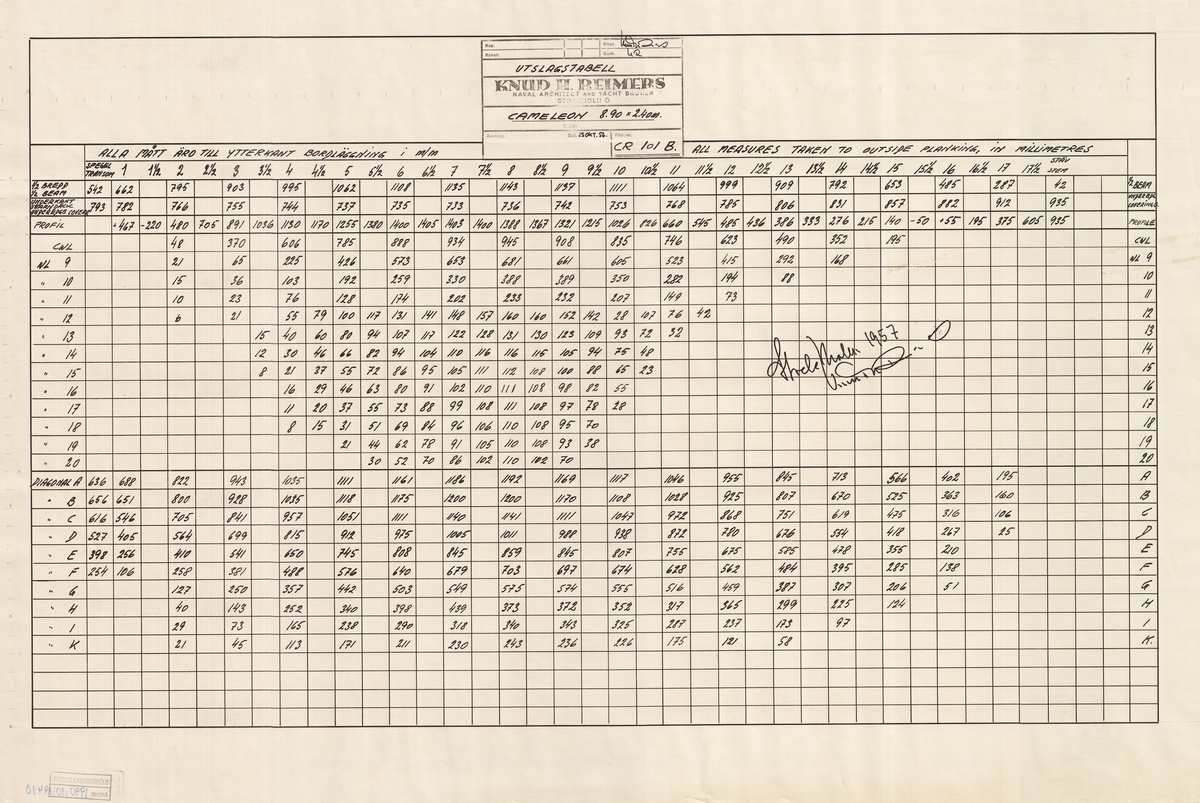 Rev.
Konstr.
Ritad.
Godk. KR
UTSLAGSTABELL
KNUD H. REIMERS
NAVAL ARCHITECT AND YACHT BROKER
STOCKHOLM Ö
CAMELEON 8.90 × 2.40 m.
Dat. 25 OKT. 56. Ritn.-nr.
CR 101 B.
ALLA MÅTT ÄRO TILL YTTERKANT BORDLÄGGNING i m/m
ALL MEASURES TAKEN TO OUTSIDE PLANKING, IN MILLIMETRES
SPEGEL TRANSOM 1 1½ 2 2½ 3 3½ 4 4½ 5 5½ 6 6½ 7 7½ 8 8½ 9 9½ 10 10½ 11 11½ 12 12½ 13 13½ 14 14½ 15 15½ 16 16½ 17 17½ STÄV STEM
½ BREDD ½ BEAM 542 662 795 903 995 1062 1108 1135 1143 1137 1111 1064 999 909 792 653 485 287 42 ½ BEAM
UNDERKANT 793 782 766 755 744 737 735 733 736 742 753 768 785 806 831 857 882 912 935
PROFIL +467 -220 480 705 891 1036 1130 1170 1255 1380 1400 1405 1403 1400 1388 1367 1321 1215 1026 826 660 545 485 436 386 333 276 215 140 -50 +55 195 375 605 935 PROFILE
CWL 48 370 606 785 888 934 945 908 835 746 623 490 352 195 CWL
NL 9 21 65 225 426 573 653 681 661 605 523 415 292 168 NL 9
" 10 15 36 103 192 259 330 388 389 350 282 194 88 10
" 11 10 23 76 128 174 202 233 232 207 149 73 11
" 12 6 21 55 79 100 117 131 141 148 157 160 160 152 142 28 107 76 42 12
" 13 15 40 60 80 94 107 117 122 128 131 130 123 109 93 72 32 13
" 14 12 30 46 66 82 94 104 110 116 116 115 105 94 75 48 14
" 15 8 21 37 55 72 86 95 105 111 112 108 100 88 65 23 15
" 16 16 29 46 63 80 91 102 110 111 108 98 82 55 16
" 17 11 20 37 55 73 88 99 108 111 108 97 78 28 17
" 18 8 15 31 51 69 84 96 106 110 108 95 70 18
" 19 21 44 62 78 91 105 110 108 93 38 19
" 20 30 52 70 86 102 110 102 70 20
DIAGONAL A 636 688 822 943 1035 1111 1161 1186 1192 1169 1117 1046 955 845 713 566 402 195 A
" B 656 651 800 928 1035 1118 1175 1200 1200 1170 1108 1028 925 807 670 525 363 160 B
" C 616 546 705 841 957 1051 1111 1140 1141 1111 1047 972 868 751 619 475 316 106 C
" D 527 405 564 699 815 912 975 1005 1011 988 938 872 780 676 554 418 267 25 D
" E 398 256 410 541 650 745 808 845 859 845 807 755 675 585 478 355 210 E
" F 254 106 258 381 488 576 640 679 703 697 674 628 562 484 395 285 138 F
" G 127 250 357 442 503 549 575 574 555 516 459 387 307 206 51 G
" H 40 143 252 340 398 439 373 372 352 317 365 299 225 124 H
" I 29 73 165 238 290 318 340 343 325 287 237 173 97 I
" K 21 45 113 171 211 230 243 236 226 175 121 58 K
Stockholm 1957